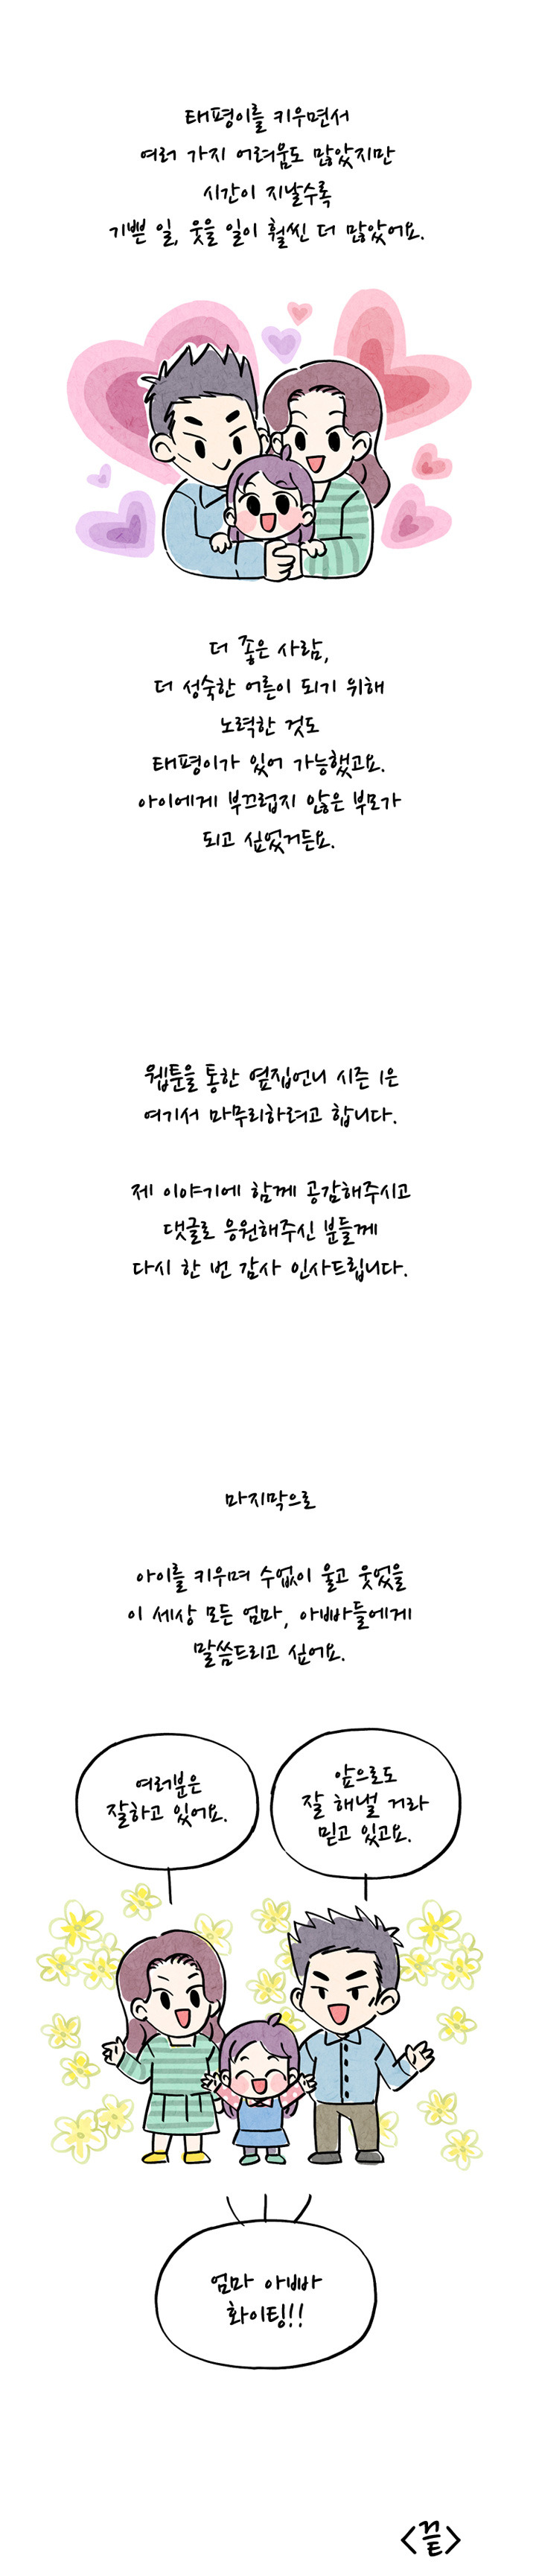 태평이를 키우면서
여러 가지 어려움도 많았지만
시간이 지날수록
기쁜 일, 웃을 일이 훨씬 더 많았어요.
더 좋은 사람,
더 성숙한 어른이 되기 위해
노력한 것도
태평이가 있어 가능했고요.
아이에게 부끄럽지 않은 부모가
되고 싶었거든요.
웹툰을 통한 옆집언니 시즌 1은
여기서 마무리하려고 합니다.
제 이야기에 함께 공감해주시고
댓글로 응원해주신 분들께
다시 한 번 감사 인사드립니다.
마지막으로
아이를 키우며 수없이 울고 웃었을
이 세상 모든 엄마, 아빠들에게
말씀드리고 싶어요.
여러분은
잘하고 있어요.
앞으로도
잘 해낼 거라
믿고 있고요.
엄마 아빠
화이팅!!
<끝>